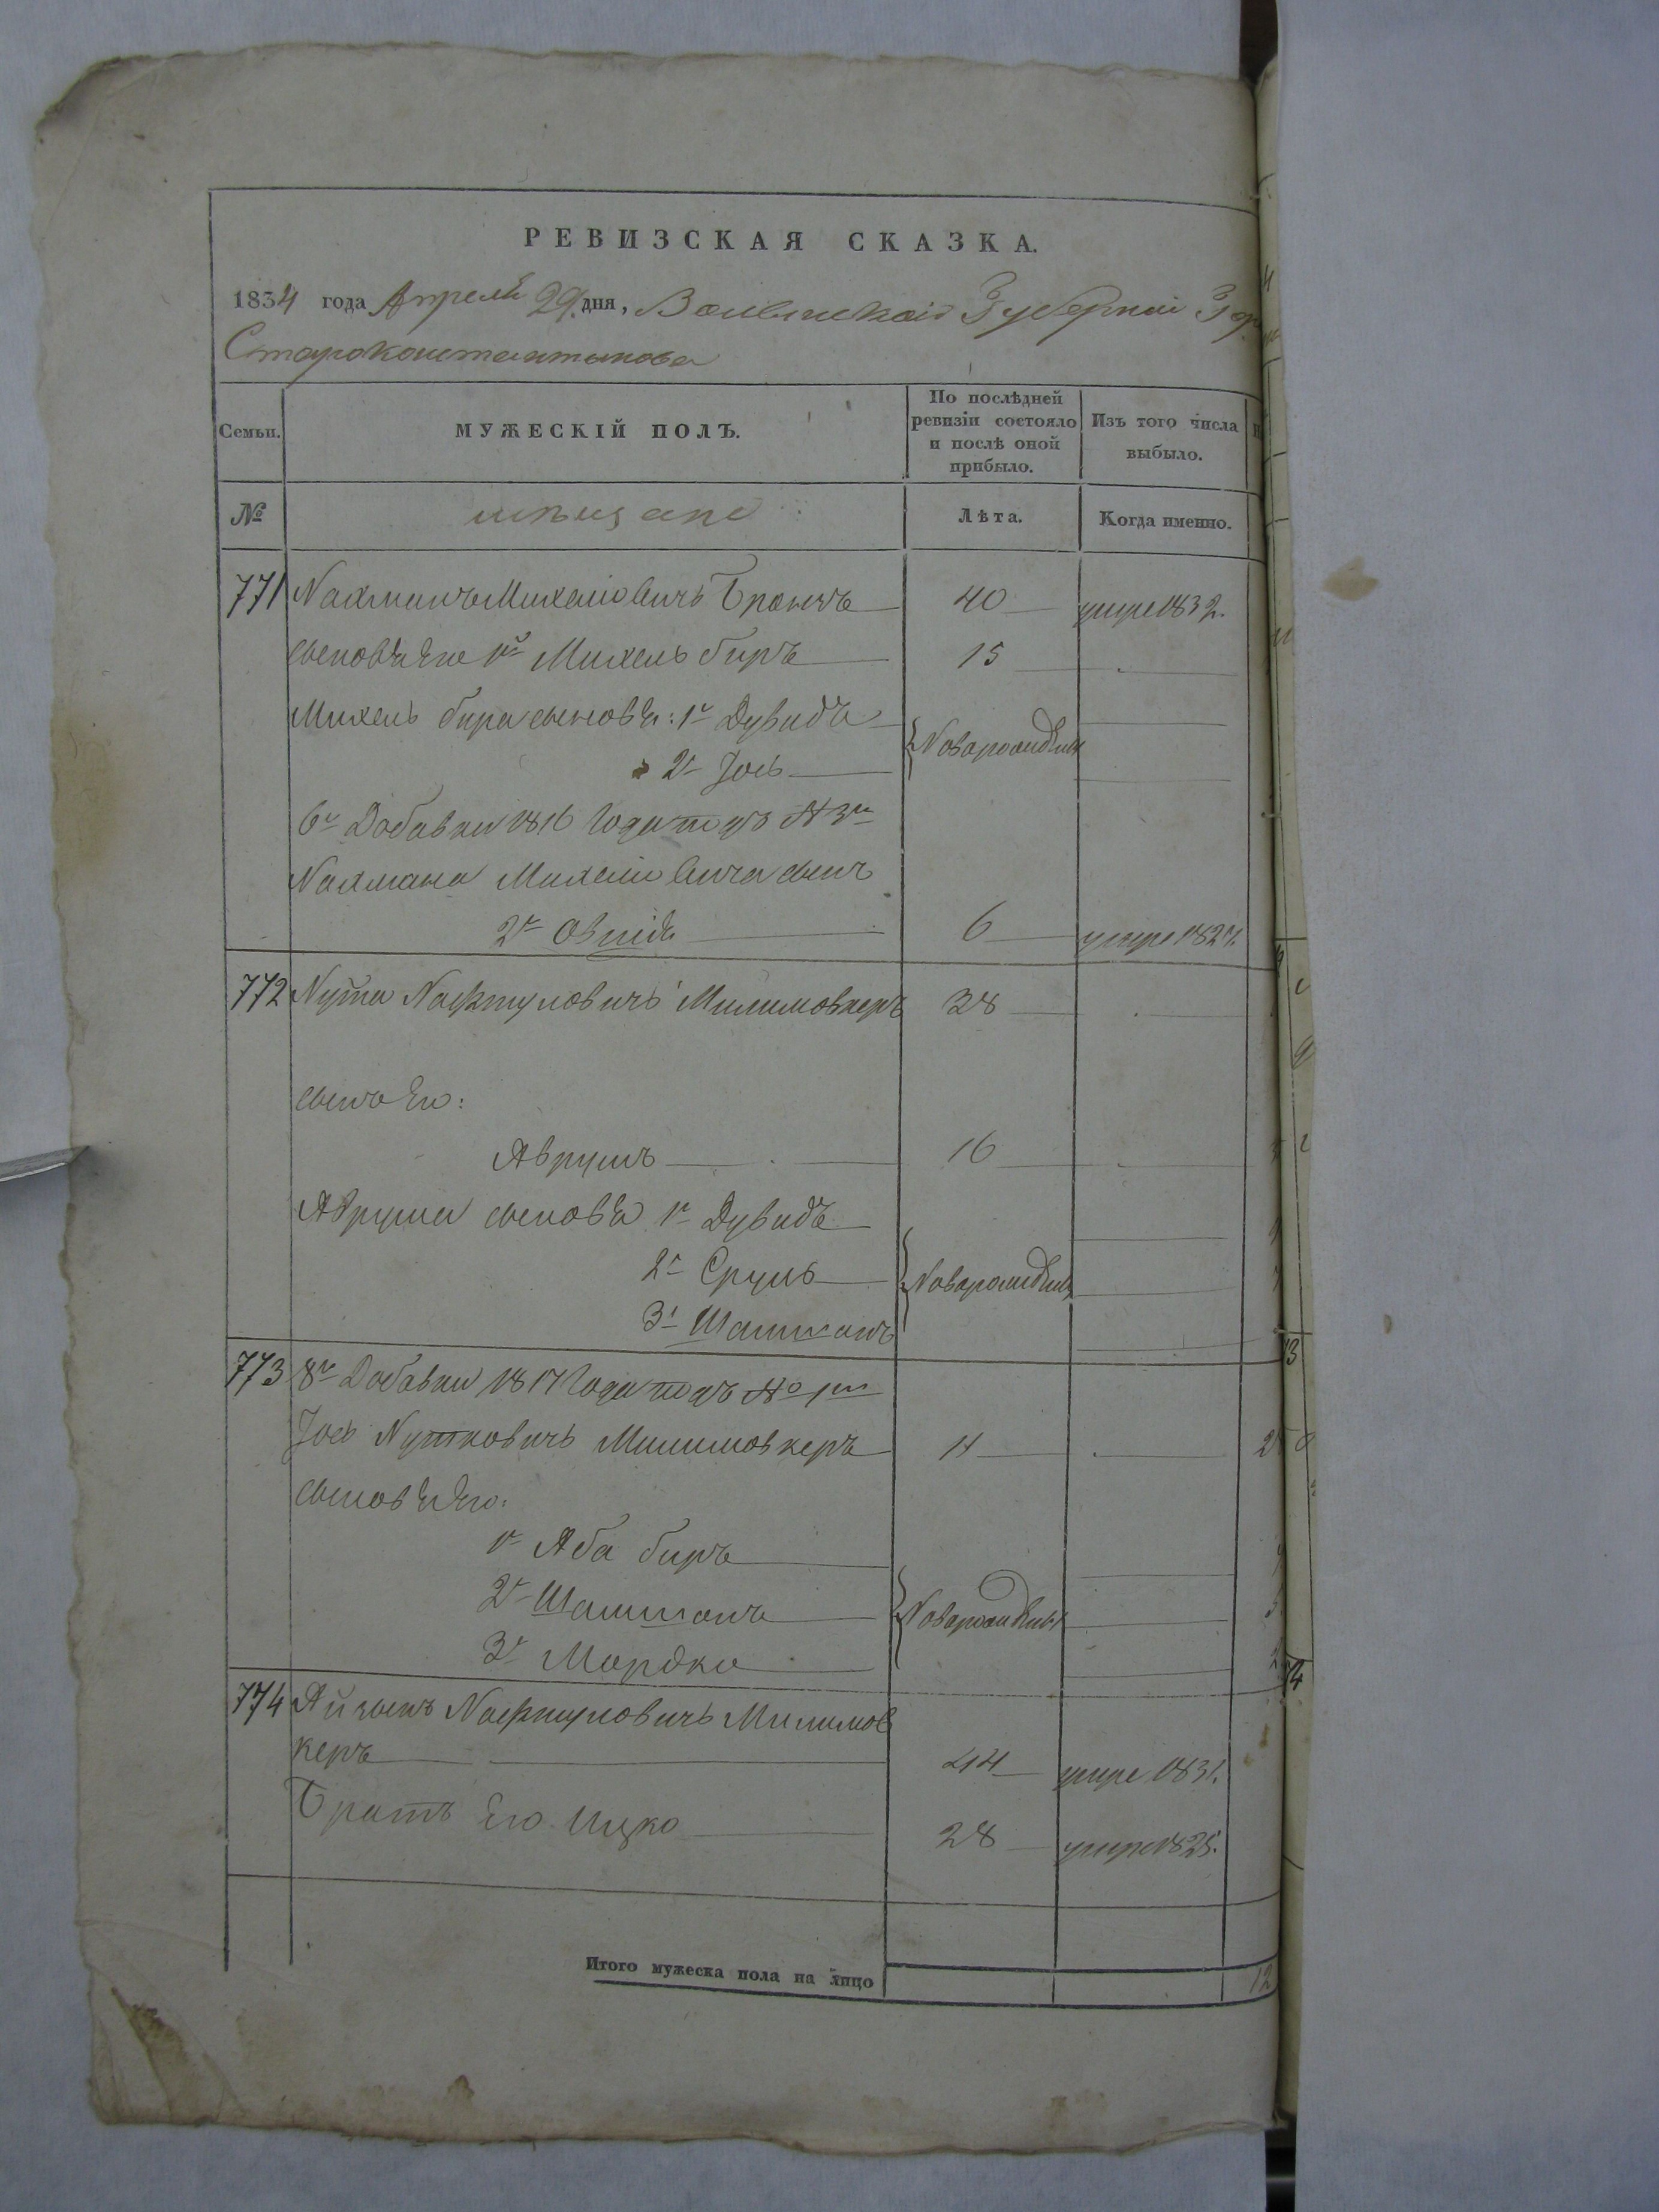 РЕВИЗСКАЯ СКАЗКА.
1834 года Апреля 29 дня, Волынской Губерніи Гор
Староконстантинова
Семьи. МУЖЕСКІЙ ПОЛЪ. По послѣдней ревизіи состояло и послѣ оной прибыло. Изъ того числа выбыло.
№ мѣщане Лѣта. Когда именно.
771 Нахманъ Михелiовичъ 40 умре 1832.
сыновья Его 1й Михель биръ 15
Михель бира сыновья: 1й Дувидъ
2й Іось Новорожденны
6й Добавки 1816 Года подъ № 3м
Нахмана Михелiовича сынъ
2й Овшія 6 умре 1827.
772 Нута Нафтуловичъ Милимовкеръ 38
сынъ Его:
Аврумъ 16
Аврума сыновья 1й Дувидъ
2й Сруль Новорожденны
3й Шашманъ
773 8й Добавки 1817 Года подъ № 1м
Іось Нутковичъ Милимовкеръ 11 2
сыновья Его:
1й Аба биръ
2й Шашманъ Новорожденны
3й Мордко
774 Айзыкъ Нафтуловичъ Милимов
керъ 44 умре 1831.
Братъ Его Ицко 28 умре 1825.
Итого мужеска пола на лицо 12